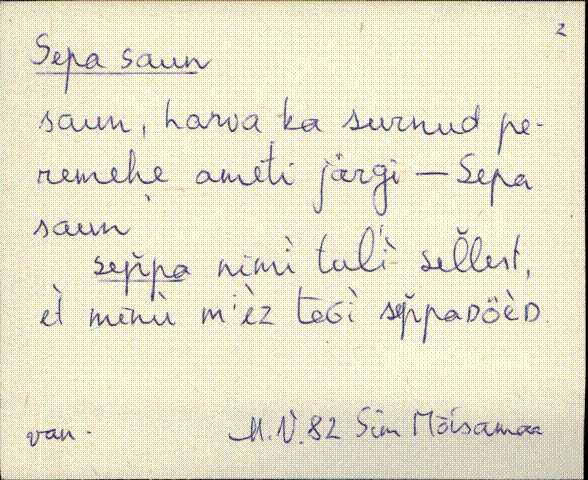 2
Sepa saun
saun, harva ka surnud pe-
remehe ameti järgi — Sepa
saun
sep̆pa nimì tul'ì sel̆lest,
èt minù m'èz teGì sep̆paDöèD.
van. M.N. 82 Sim Mõisamaa